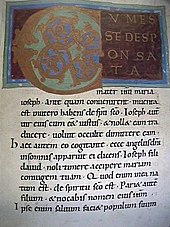 C VMES
SE DESP
ONSA
TA
mater eius maria
ioseph. Ante quam conuenirent inuenta
est in utero habens de spu sco. Ioseph aut
uir eius cum esset iustus & nollet eam tra
ducere. uoluit occulte dimittere eam
Haec autem eo cogitante. ecce angelus dni
in somnis apparuit ei dicens. Ioseph fili
dauid. noli timere accipere mariam
coniugem tuam. Quod enim in ea na
tum est. de spu sco est. Pariet aute
filium & uocabis nomen eius ihm
Ipse enim saluum faciet populum suum